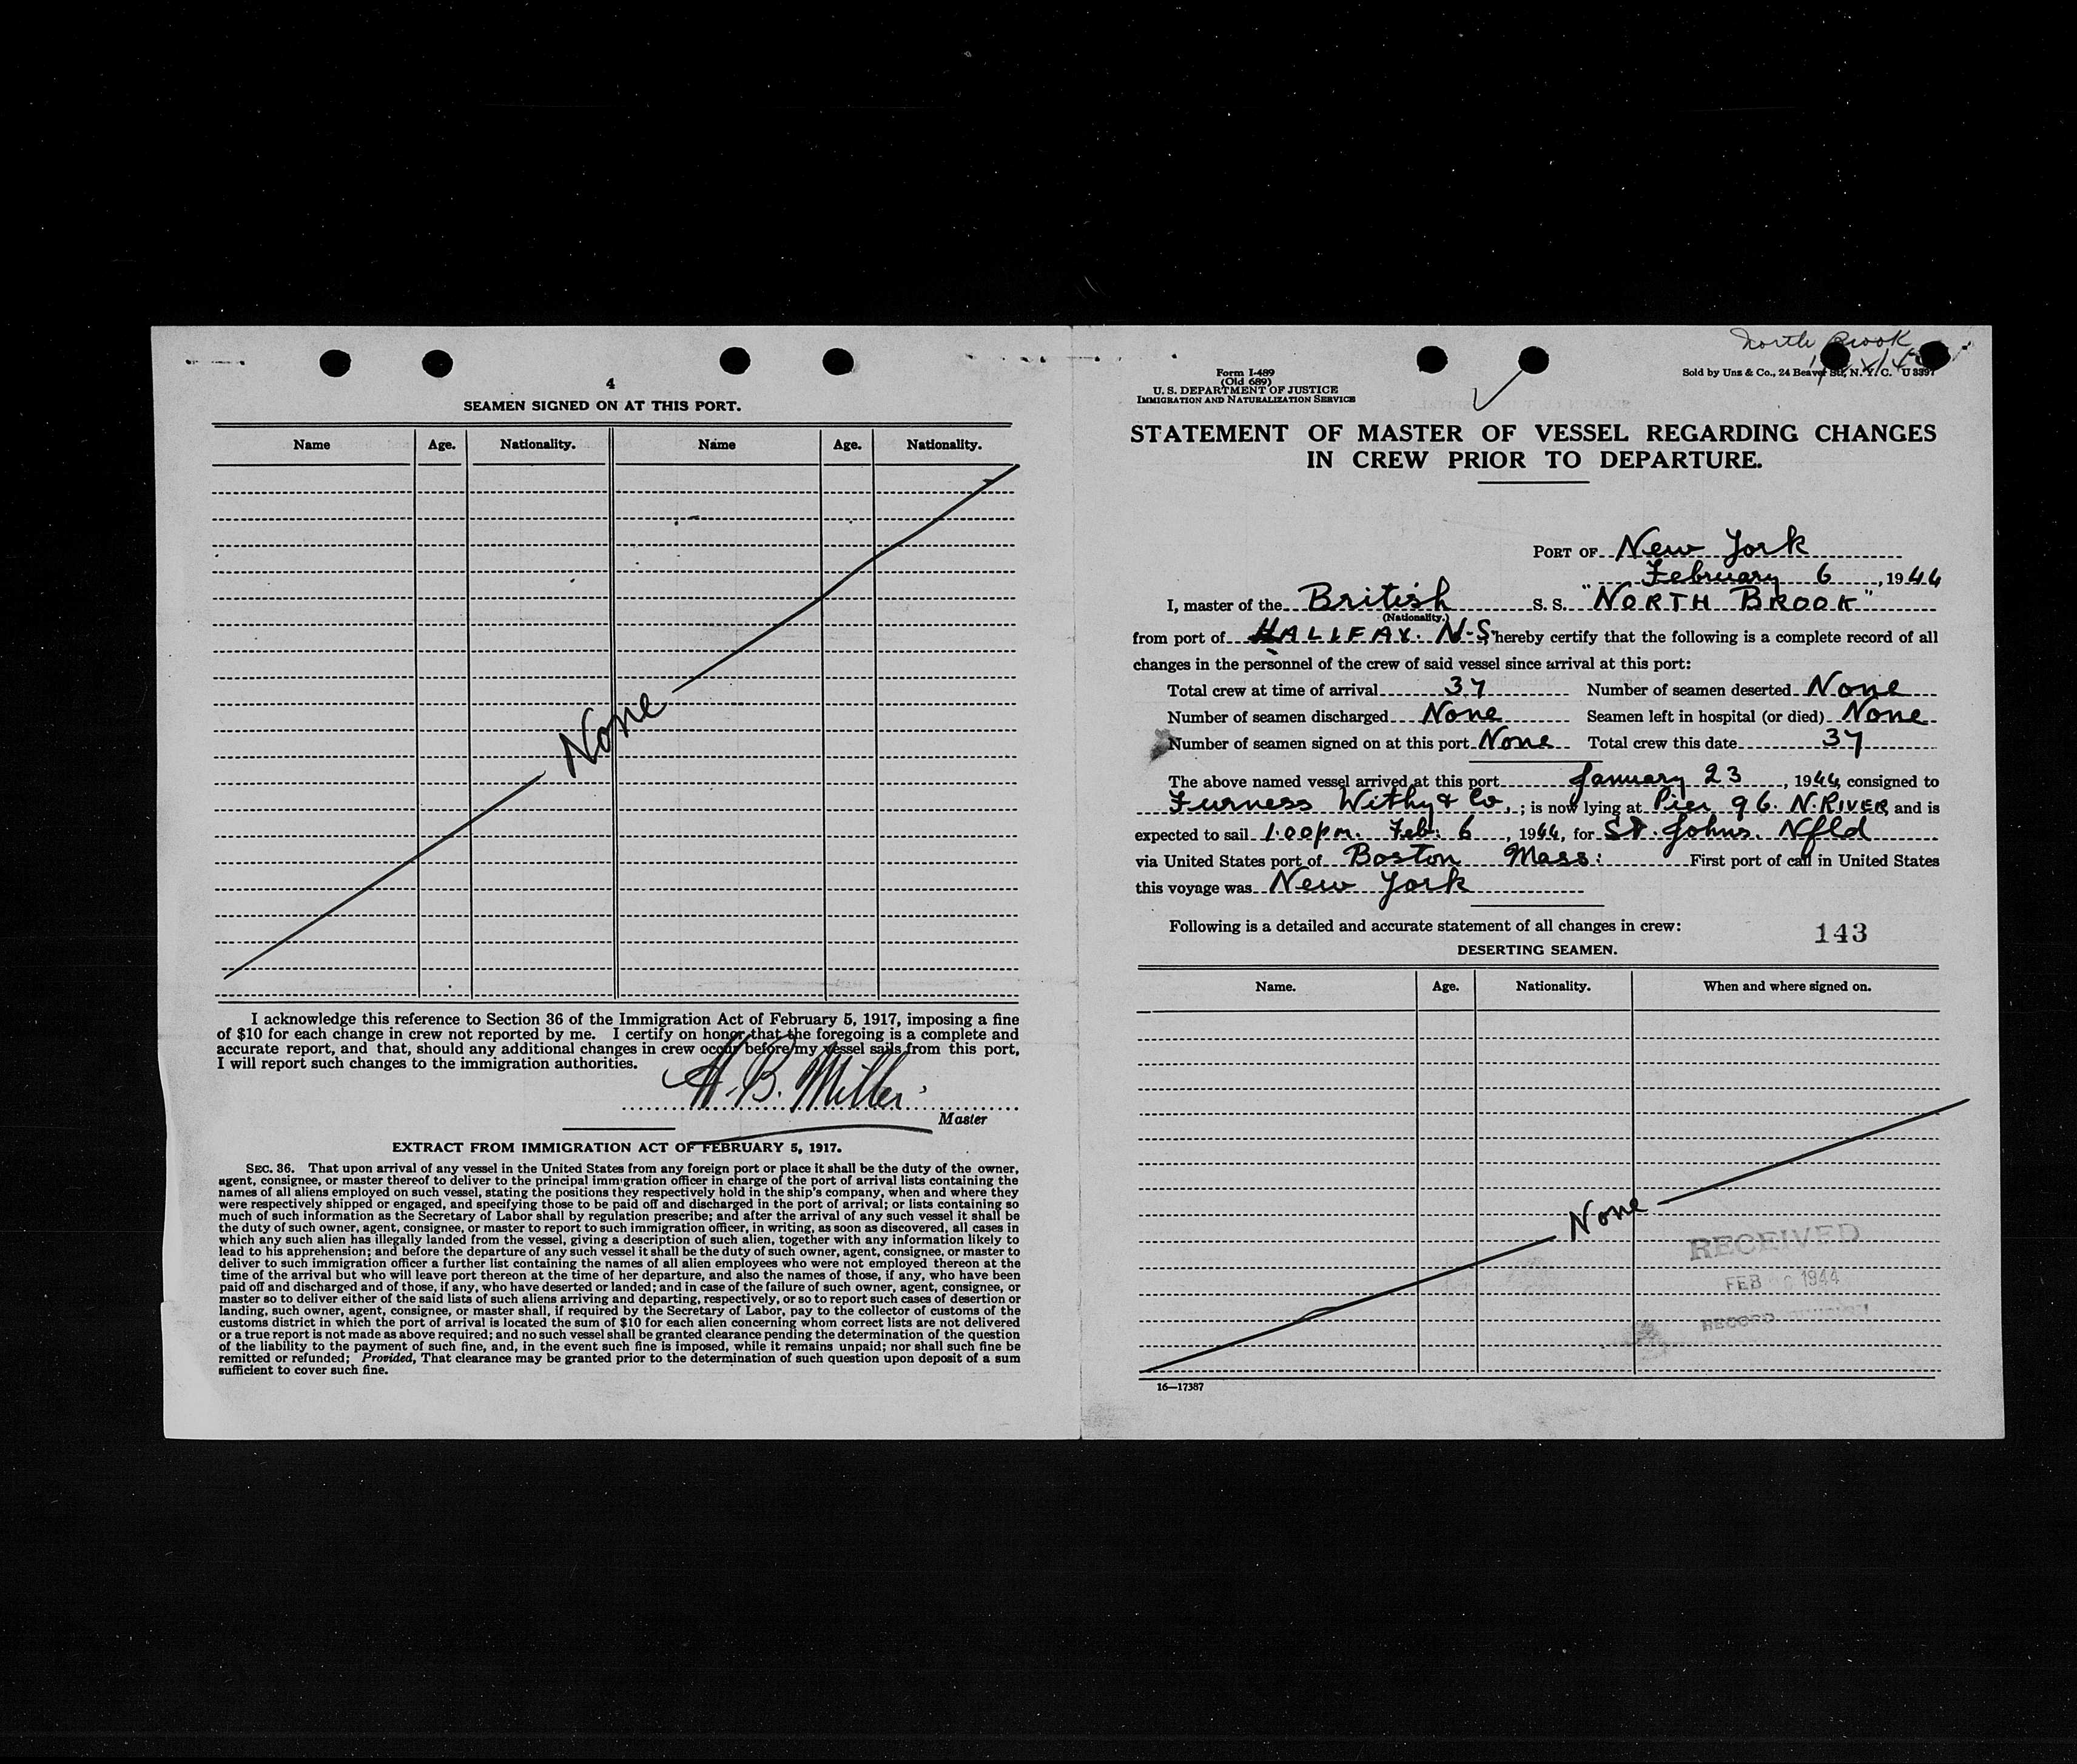 4
SEAMEN SIGNED ON AT THIS PORT.
Name Age. Nationality. Name Age. Nationality.
None
I acknowledge this reference to Section 36 of the Immigration Act of February 5, 1917, imposing a fine
of $10 for each change in crew not reported by me. I certify on honor that the foregoing is a complete and
accurate report, and that, should any additional changes in crew occur before my vessel sails from this port,
I will report such changes to the immigration authorities.
H. B. Miller
Master
EXTRACT FROM IMMIGRATION ACT OF FEBRUARY 5, 1917.
SEC. 36. That upon arrival of any vessel in the United States from any foreign port or place it shall be the duty of the owner,
agent, consignee, or master thereof to deliver to the principal immigration officer in charge of the port of arrival lists containing the
names of all aliens employed on such vessel, stating the positions they respectively hold in the ship's company, when and where they
were respectively shipped or engaged, and specifying those to be paid off and discharged in the port of arrival; or lists containing so
much of such information as the Secretary of Labor shall by regulation prescribe; and after the arrival of any such vessel it shall be
the duty of such owner, agent, consignee, or master to report to such immigration officer, in writing, as soon as discovered, all cases in
which any such alien has illegally landed from the vessel, giving a description of such alien, together with any information likely to
lead to his apprehension; and before the departure of any such vessel it shall be the duty of such owner, agent, consignee, or master to
deliver to such immigration officer a further list containing the names of all alien employees who were not employed thereon at the
time of the arrival but who will leave port thereon at the time of her departure, and also the names of those, if any, who have been
paid off and discharged and of those, if any, who have deserted or landed; and in case of the failure of such owner, agent, consignee, or
master so to deliver either of the said lists of such aliens arriving and departing, respectively, or so to report such cases of desertion or
landing, such owner, agent, consignee, or master shall, if required by the Secretary of Labor, pay to the collector of customs of the
customs district in which the port of arrival is located the sum of $10 for each alien concerning whom correct lists are not delivered
or a true report is not made as above required; and no such vessel shall be granted clearance pending the determination of the question
of the liability to the payment of such fine, and, in the event such fine is imposed, while it remains unpaid; nor shall such fine be
remitted or refunded; Provided, That clearance may be granted prior to the determination of such question upon deposit of a sum
sufficient to cover such fine.
North Brook
Form I-489
(Old 689)
U. S. DEPARTMENT OF JUSTICE
IMMIGRATION AND NATURALIZATION SERVICE
Sold by Unz & Co., 24 Beaver Str., N. Y. C. U 3397
STATEMENT OF MASTER OF VESSEL REGARDING CHANGES
IN CREW PRIOR TO DEPARTURE.
PORT OF New York
February 6, 1944
I, master of the British S. S. "NORTH BROOK"
(Nationality.)
from port of HALIFAX. N.S, hereby certify that the following is a complete record of all
changes in the personnel of the crew of said vessel since arrival at this port:
Total crew at time of arrival 37 Number of seamen deserted None
Number of seamen discharged None Seamen left in hospital (or died) None
Number of seamen signed on at this port None Total crew this date 37
The above named vessel arrived at this port January 23, 1944, consigned to
Furness Withy & Co.; is now lying at Pier 96. N. RIVER and is
expected to sail 1.00pm. Feb: 6, 1944, for St. Johns. Nfld
via United States port of Boston Mass: First port of call in United States
this voyage was New York
Following is a detailed and accurate statement of all changes in crew:
143
DESERTING SEAMEN.
Name. Age. Nationality. When and where signed on.
None
RECEIVED
FEB 1944
RECORD DIVISION
16—17387